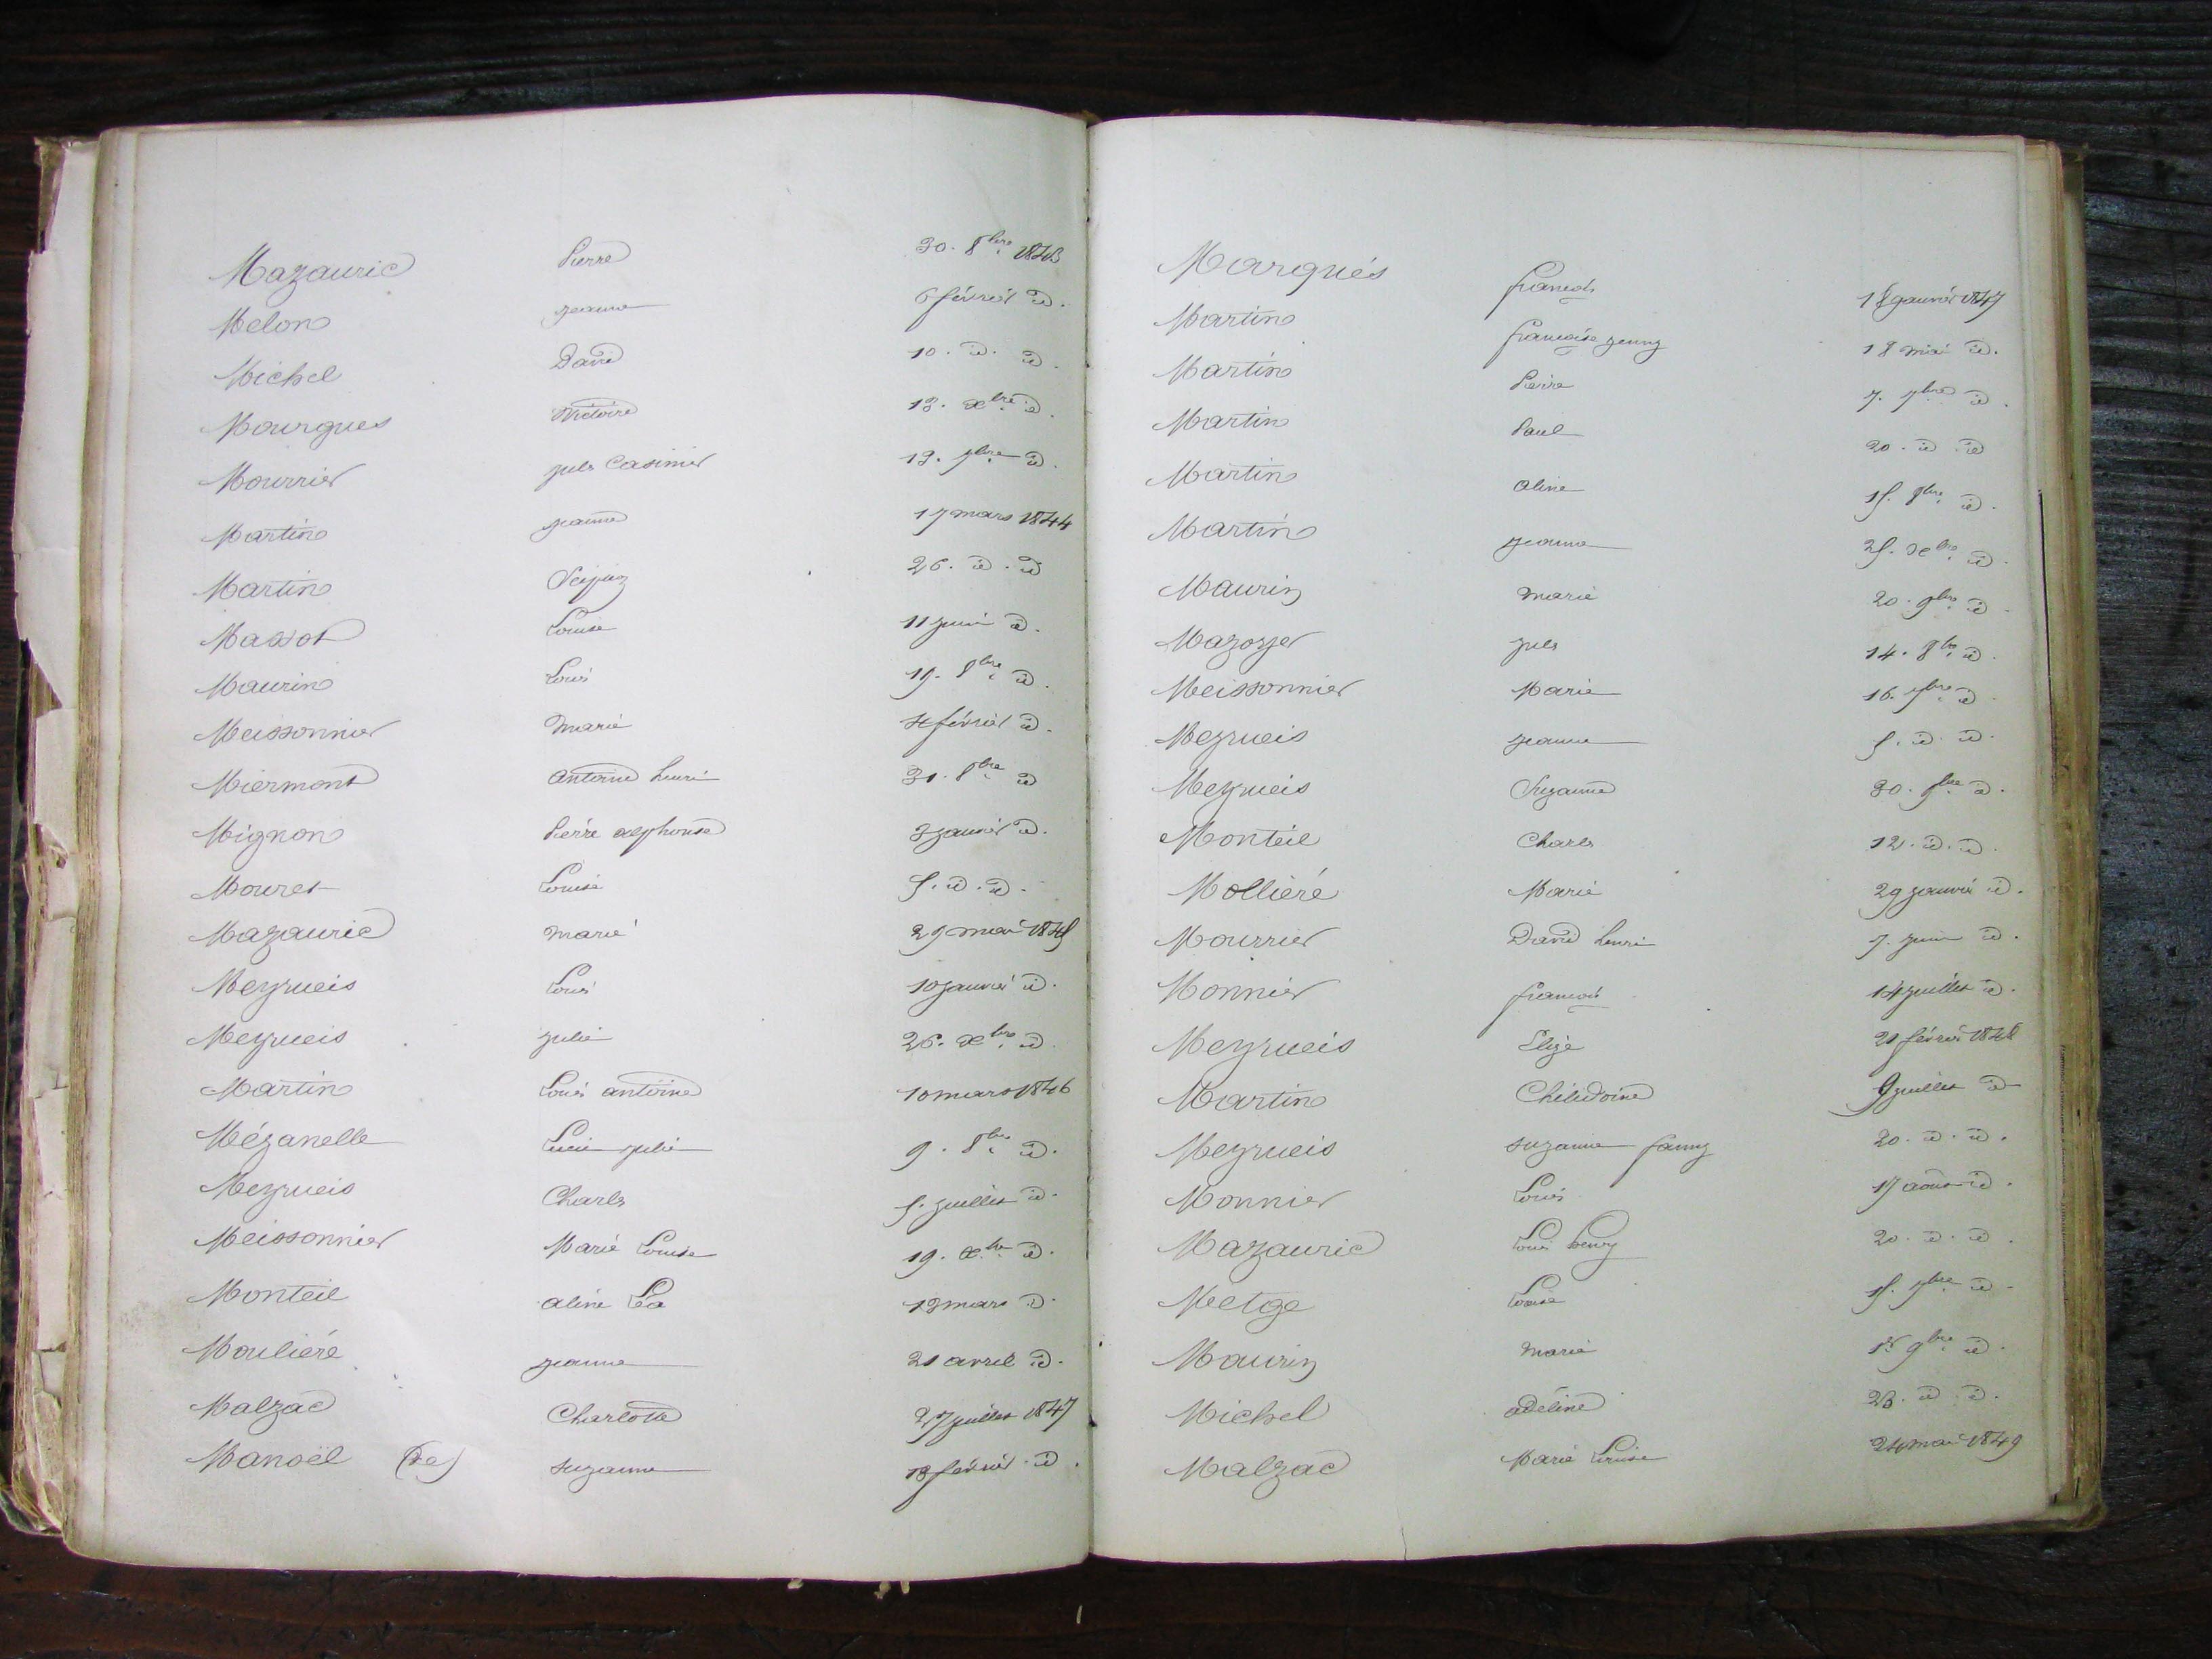 Mazauric Pierre 30. 8bre 1843
Melon jeanne 6 février id.
Michel David 10. id. id.
Mourgues Victoire 13. xbre id.
Mourrier jules Casimir 19. 7bre id.
Martin jeanne 17 mars 1844
Martin Scipion 26. id. id
Massot Louise 11 juin id.
Maurin Louis 19. 8bre id.
Meissonnier marie 4 février id.
Miermont antoine henri 31. 8bre id
Mignon Pierre alphonse 3 janvier id.
Mouret Louise 5. id. id.
Mazauric marie 29 mai 1845
Meyrueis Louis 10 janvier id.
Meyrueis julie 26. xbre id.
Martin Louis antoine 10 mars 1846
Mézanelle Lucie julie 9. 8bre id.
Meyrueis Charles 5. juillet id.
Meissonnier Marie Louise 19. xbre id.
Monteil aline Léa 13 mars id.
Mouliéré jeanne 21 avril id.
Malzac Charlotte 27 juillet 1847
Manoël (de) suzanne 18 février id.
Marqués francois 18 janvier 1847
Martin francoise jenny 18 mai id.
Martin Pierre 7. 7bre id.
Martin Paul 20. id. id
Martin aline 15. 8bre id.
Martin jeanne 25. xbre id.
Maurin marie 20. 9bre id.
Mazoyer jules 14. 8bre id.
Meissonnier Marie 16. 7bre id
Meyrueis jeanne 5. id. id.
Meyrueis Suzanne 30. id.
Monteil Charles 12. id. id.
Mollièré Marie 29 janvier id.
Mourrier David henri 7. juin id.
Monnier francois 14 juillet id.
Meyrueis Elize 21 février 1848
Martin Chélidoine 9 juillet id
Meyrueis suzanne fanny 20. id. id.
Monnier Louis 17 aout id.
Mazauric Louis henry 20. id. id.
Metge Louise 15. 7bre id.
Maurin marie 1er 9bre id.
Michel adéline 23. id. id.
Malzac Marie Louise 24 mai 1849